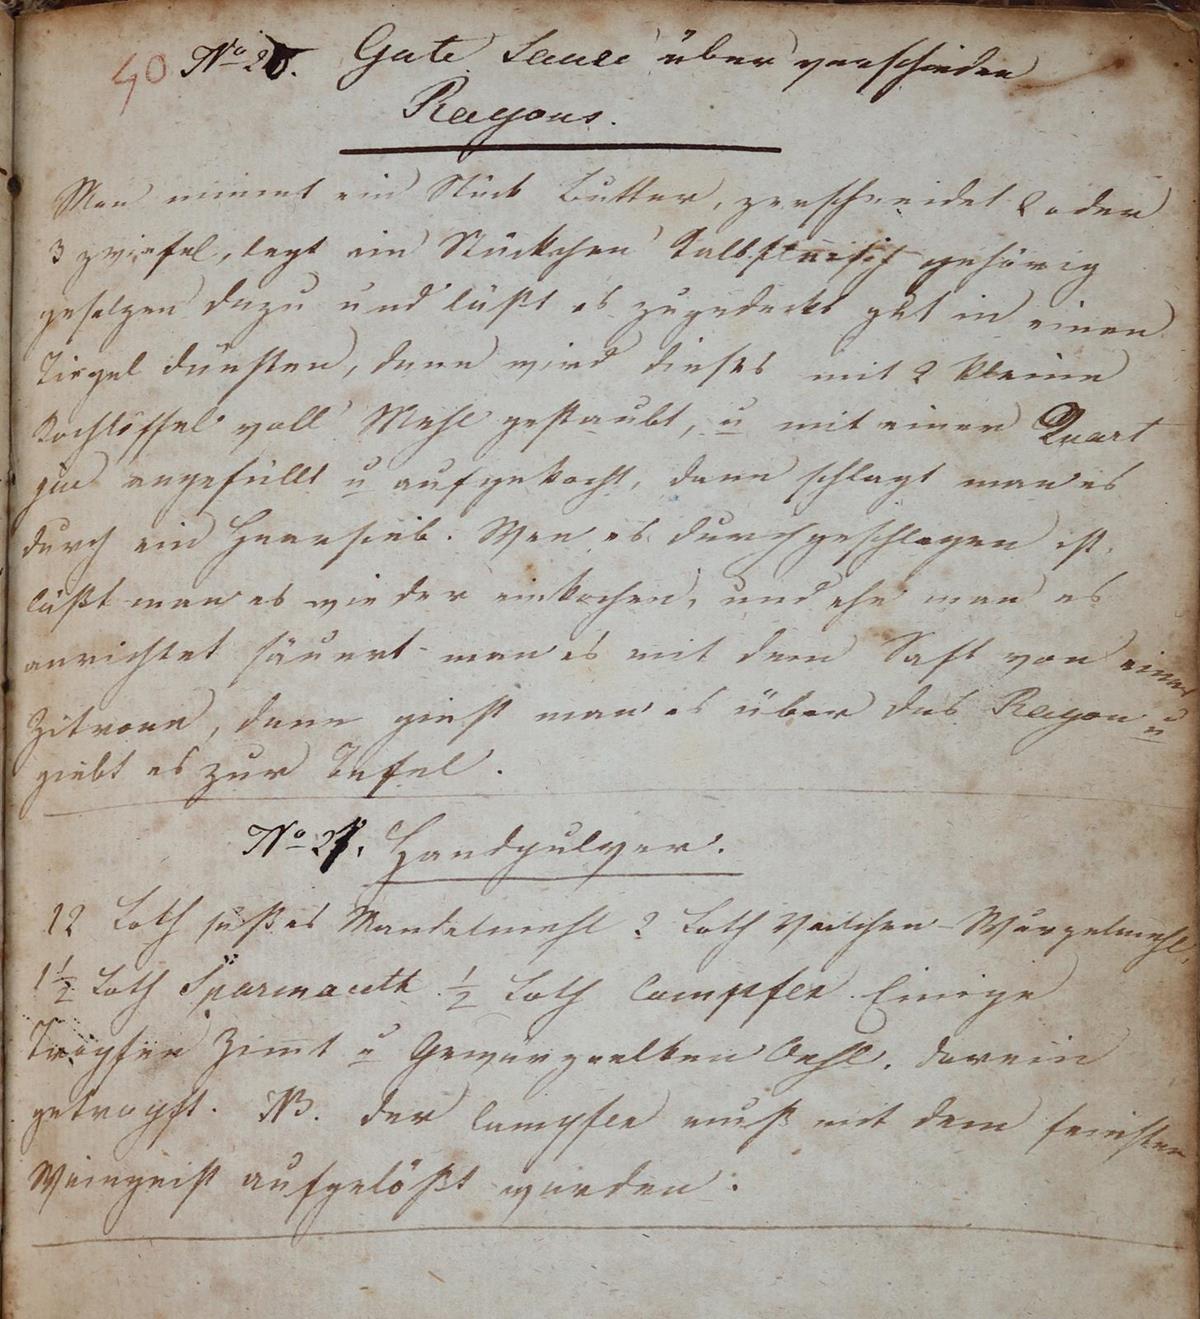 40 No 20. Gute Sauce über verschiedne
Ragous.
Man nimmt ein Stück Butter, zerschneidet 2 oder
3 zwiefel, legt ein Stückchen Kalbfleisch gehörig
gesalzen dazu und läßt es zugedeckt gut in einen
Tiegel dünsten, dann wird dieses mit 2 kleine
Kochlöffel voll Mehl gestaubt, u mit einer Quart
jus angefüllt u aufgekocht, dann schlagt man es
durch ein Haarsieb. Wen es durchgeschlagen ist,
läßt man es wieder einkochen, und ehe man es
anrichtet säuert man es mit dem Saft von einer
Zitrone, dann gießt man es über das Ragou u
giebt es zur Tafel.
No 21. Handpulver.
12 Loth süßes Mandelmehl 2 Loth Veilchen-Wurzelmehl,
1 1/2 Loth 1/2 Loth Campfer Einige
Tropfen Zimt u Gewürznelken Oehl. darein
getropft. NB. der Campfer muß mit dem feinsten
Weingeist aufgelößt werden.